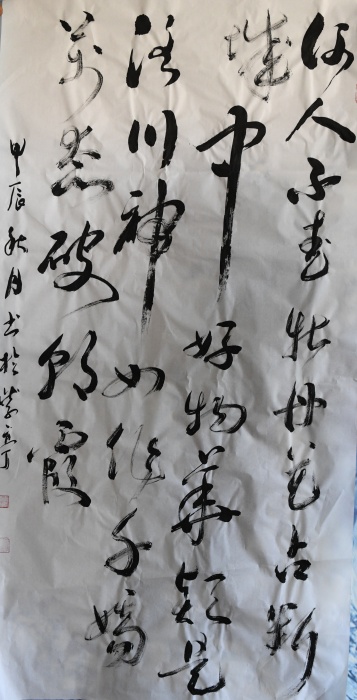 何人不爱牡丹花占断
城中好物华疑是
洛川神女作千娇
万态破朝霞
甲辰秋月书于